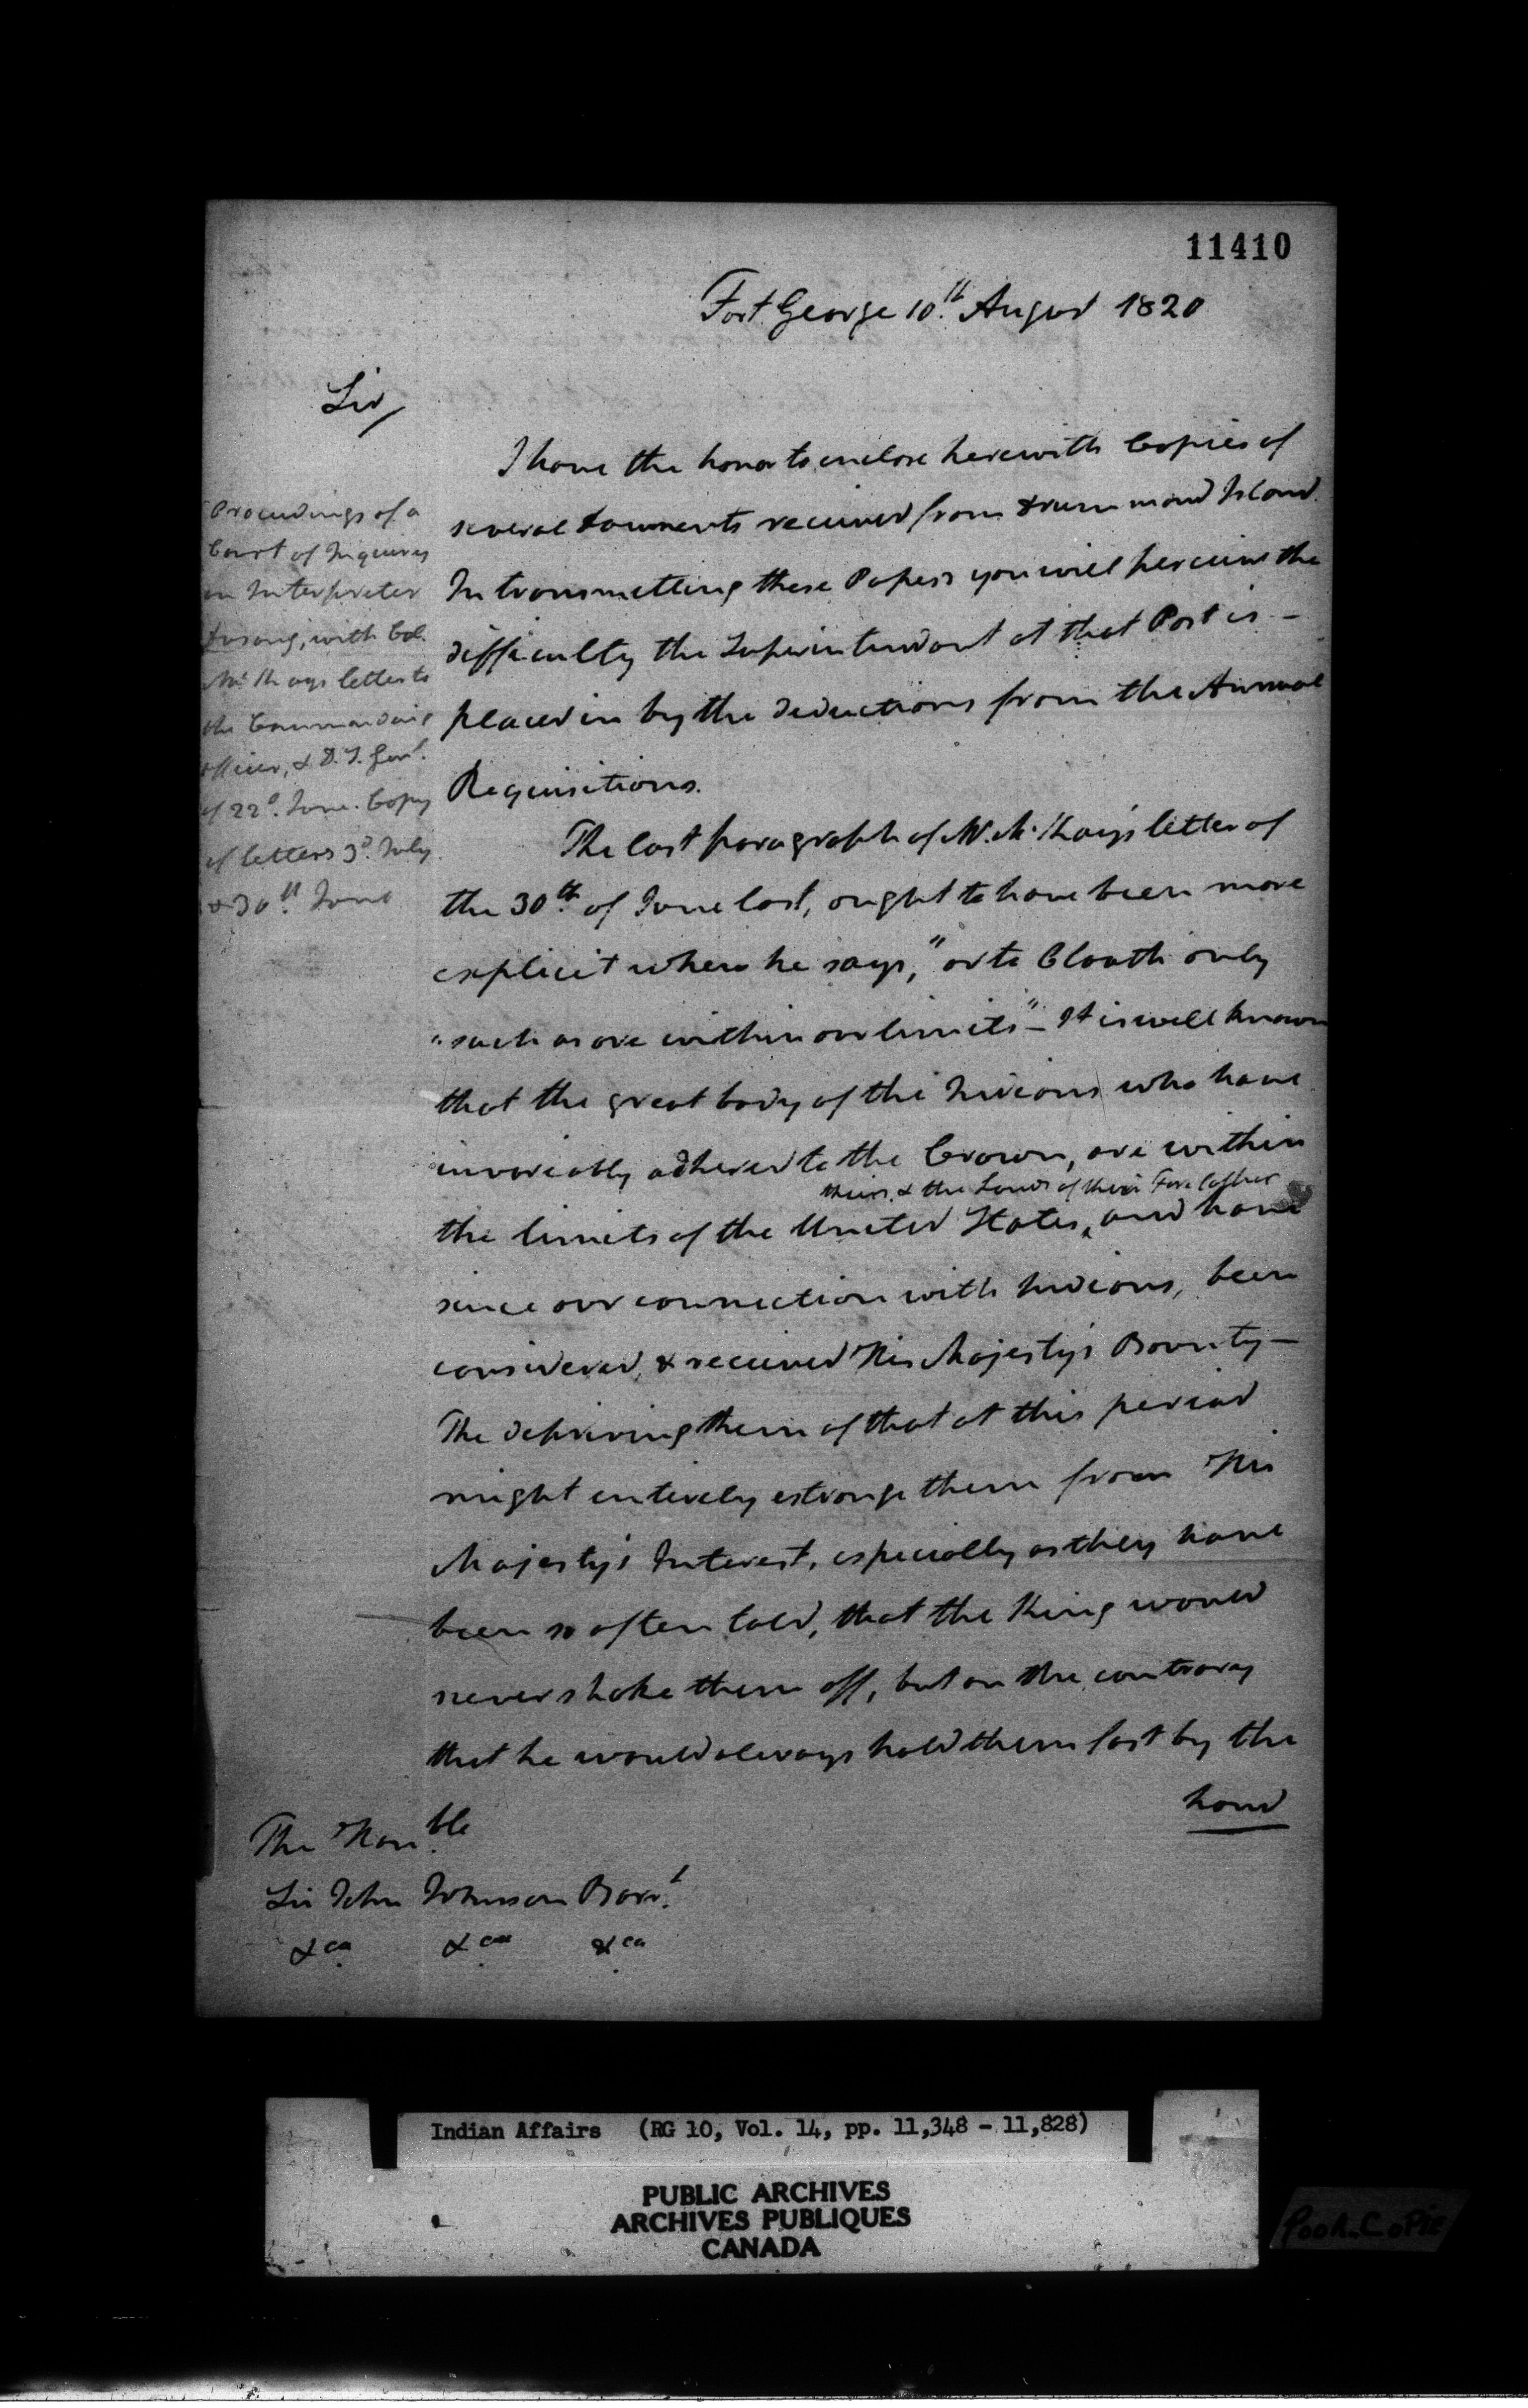 11410
Fort George 10.th August 1820
Sir/
I have the honor to enclose herewith Copies of
several documents received from Drummond Island.
In transmitting these Papers you will perceive the
difficulty the Superintendant at that Post is –
placed in by the deductions from the Annual
Requisitions.
Proceedings of a
Court of Inquiry
on Interpreter
with Col.
Mc Kays letter to
the Commanding
officer, & D. I. Genl.
of 22d. June. Copy
of letters 3d. July
& 30.th June
The last paragraph of Mr. Mc Kay's letter of
the 30.th of June last, ought to have been more
explicit when he says, "or to Cloath only
"such as are within our limits" – It is well known
that the great body of the Indians who have
invariably adhered to the Crown, are within
theirs, & the Lands of their Forefather
the limits of the United States, and have
since our connection with Indians, been
considered, & received His Majesty's Bounty –
The depriving them of that at this period
might entirely estrange them from His
Majesty's Interest, especially as they have
been so often told, that the King would
never shake them off, but on the contrary
that he would always hold them fast by the
hand
The Hon.ble
Sir John Johnson Barr.t
&ca &ca &ca
Indian Affairs (RG 10, Vol. 14, pp. 11,348 - 11,828)
PUBLIC ARCHIVES
ARCHIVES PUBLIQUES
CANADA
Poor Copie